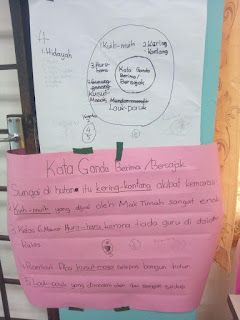 1. Hidayah
1. Kuih-muih
2. Kering kontang
3. Huru-hara
Kata Ganda Berima / Bersajak
4. Gunung-ganang
Kusut Masai
Mundar-mandir
Lauk-pauk
Kata Ganda Berima / Bersajak
Sungai di hutan itu kering-kontang akibat kemarau
2. Kuih-muih yang dijual oleh Mak Timah sangat enak
3. Kelas 6 Mawar Huru-hara kerana tiada guru di dalam
Kelas
4. Rambut Dība kusut-masai selepas bangun tidur
5. Lauk-pauk yang dimasak oleh ibu sangat